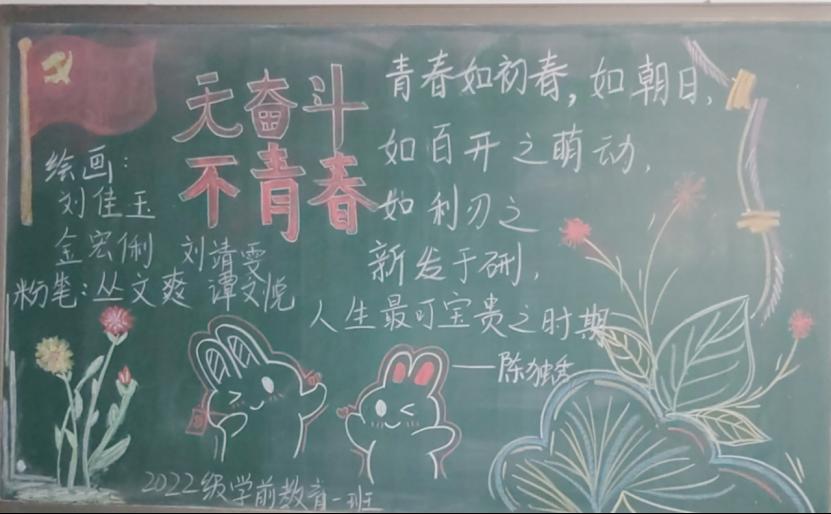 无奋斗
不青春
青春如初春，如朝日，
如百开之萌动，
如利刃之
新发于硎，
人生最可宝贵之时期
——陈独秀
绘画：
刘佳玉
金宏俐 刘靖雯
粉笔：丛文爽 谭文悦
2022级学前教育一班